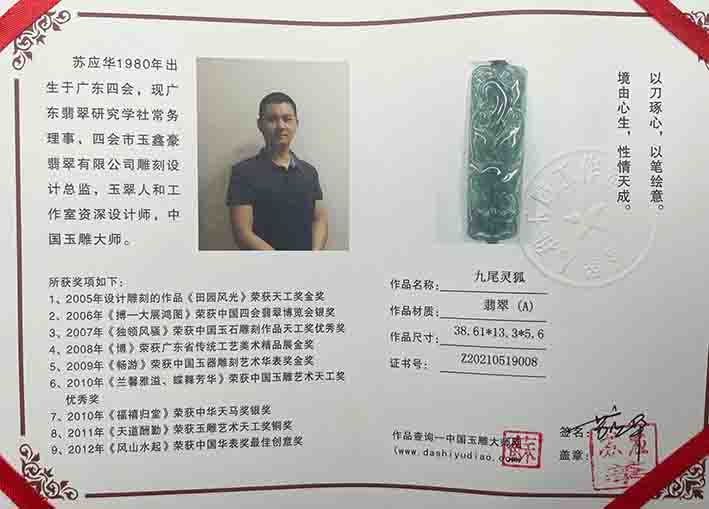 苏应华1980年出
生于广东四会，现广
东翡翠研究学社常务
理事，四会市玉鑫豪
翡翠有限公司雕刻设
计总监、玉翠人和工
作室资深设计师，中
国玉雕大师。
以刀琢心，以笔绘意。
境由心生，性情天成。
所获奖项如下：
1、2005年设计雕刻的作品《田园风光》荣获天工奖金奖
2、2006年《搏一大展鸿图》荣获中国四会翡翠博览会银奖
3、2007年《独领风骚》荣获中国玉石雕刻作品天工奖优秀奖
4、2008年《博》荣获广东省传统工艺美术精品展金奖
5、2009年《畅游》荣获中国玉器雕刻艺术华表奖金奖
6、2010年《兰馨雅溢、蝶舞芳华》荣获中国玉雕艺术天工奖
优秀奖
7、2010年《福禧归堂》荣获中华天马奖银奖
8、2011年《天道酬勤》荣获玉雕艺术天工奖铜奖
9、2012年《风山水起》荣获中国华表奖最佳创意奖
作品名称：九尾灵狐
作品材质：翡翠（A）
作品尺寸：38.61*13.3*5.6
证书号：Z20210519008
作品查询—中国玉雕大师网
(www.dashiyudiao.com)
签名：苏应华
盖章：